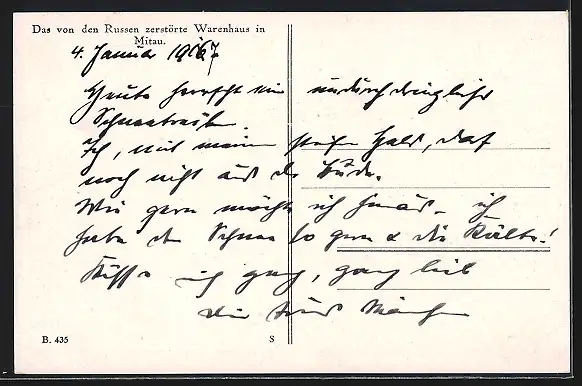 Das von den Russen zerstörte Warenhaus in
Mitau.
4. Januar 1917
Heute herrscht ein undurchdringliches
Schneetreiben.
Ich, mit meinem steifen Hals, darf
noch nicht aus der Bude.
Wie gern möchte ich hinaus. ich
habe den Schnee so gern & die Kälte!
Küsse ich ganz, ganz lieb
die
B. 435
S